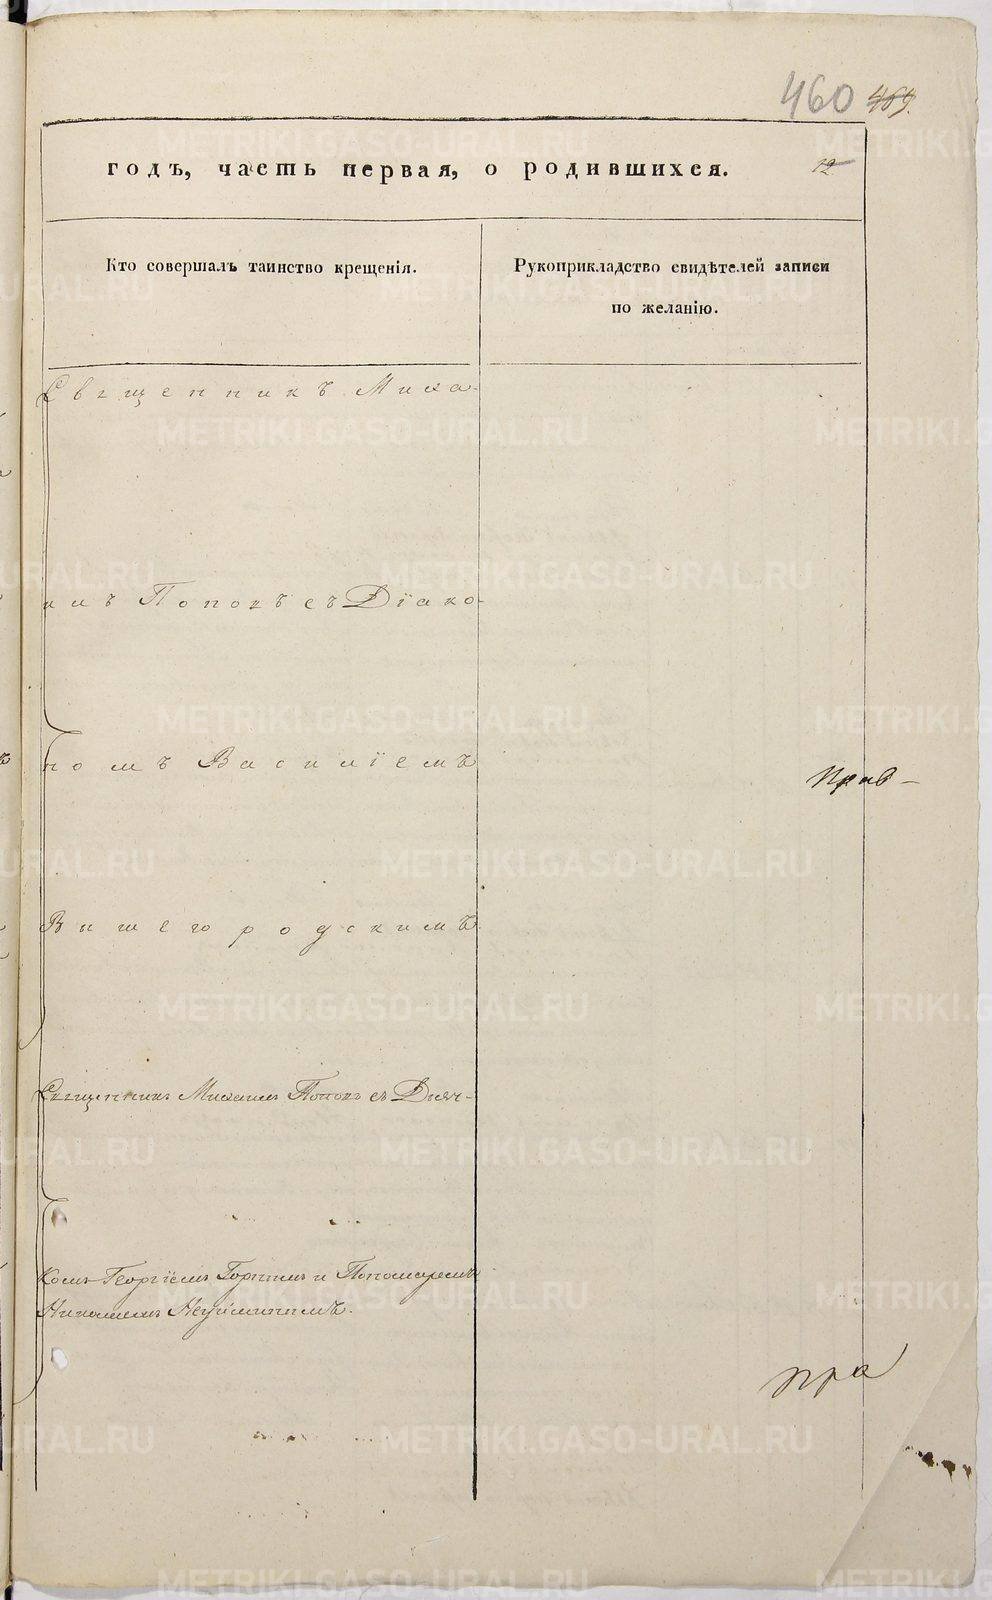 460 469.
годъ, часть первая, о родившихся. 12
Кто совершалъ таинство крещенія.
Рукоприкладство свидѣтелей записи
по желанію.
Священникъ Миха-
илъ Поповъ съ Діако-
номъ Василіемъ
Вышегородскимъ
Священникъ Михаилъ Поповъ съ Дьяч-
комъ Георгіемъ Горнымъ и Пономаремъ
Николаемъ Неуйминымъ.
Прав-
пра
METRIKI.GASO-URAL.RU